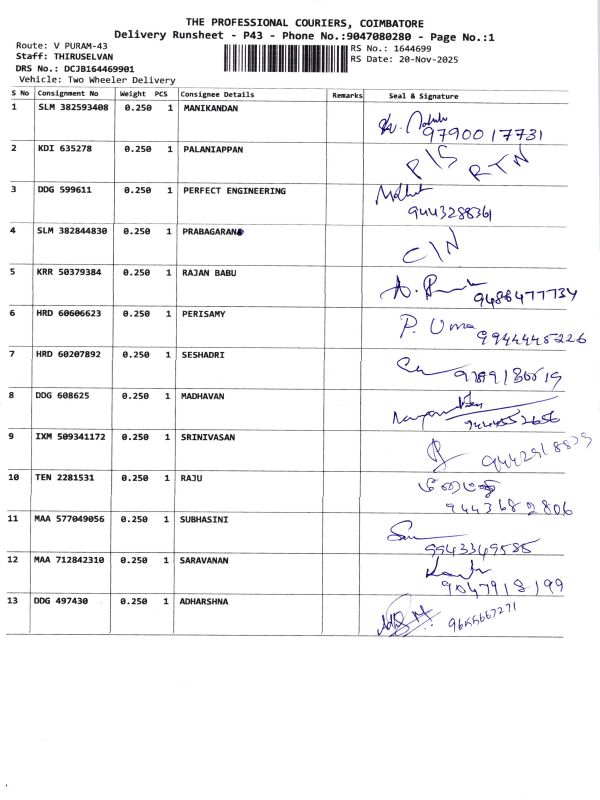 THE PROFESSIONAL COURIERS, COIMBATORE
Delivery Runsheet - P43 - Phone No.:9047080280 - Page No.:1
Route: V PURAM-43
RS No.: 1644699
Staff: THIRUSELVAN
RS Date: 20-Nov-2025
DRS No.: DCJB164469901
Vehicle: Two Wheeler Delivery
S No Consignment No Weight PCS Consignee Details Remarks Seal & Signature
1 SLM 382593408 0.250 1 MANIKANDAN
9790017731
2 KDI 635278 0.250 1 PALANIAPPAN
P/S RTN
3 DDG 599611 0.250 1 PERFECT ENGINEERING
9443288361
4 SLM 382844830 0.250 1 PRABAGARAN
C/N
5 KRR 50379384 0.250 1 RAJAN BABU
9486477734
6 HRD 60606623 0.250 1 PERISAMY
P. Uma 9944445226
7 HRD 60207892 0.250 1 SESHADRI
8 DDG 608625 0.250 1 MADHAVAN
9 IXM 509341172 0.250 1 SRINIVASAN
10 TEN 2281531 0.250 1 RAJU
9443682806
11 MAA 577049056 0.250 1 SUBHASINI
9943349585
12 MAA 712842310 0.250 1 SARAVANAN
9047918199
13 DDG 497430 0.250 1 ADHARSHNA
9655667271